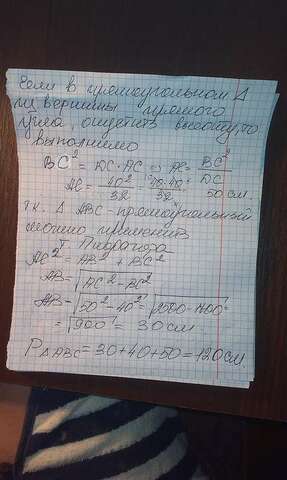 Если в прямоугольном Δ
из вершины прямого
угла, опустить высоту, то
выполнимо
BC² = DC·AC ⇒ AC = BC²/DC
AC = 40²/32 = 40·40/32 = 50 см.
т.к. Δ ABC - прямоугольный
можно применить
т Пифагора
AC² = AB² + BC²
AB = √AC² - BC²
AB = √50² - 40² = √2500 - 1600 =
= √900 = 30 см
PΔABC = 30+40+50 = 120 см.